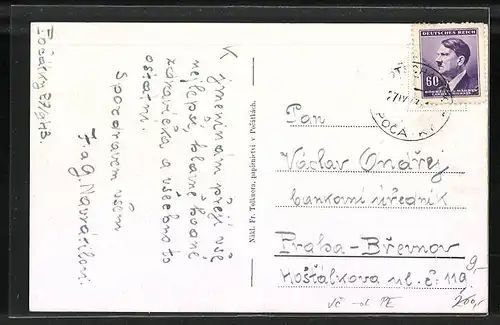 Počátky 27/9 43.
K jmeninám přeji vše
nejlepší, hlavně hodně
zdravíčka a všechno to
ostatní.
S pozdravem všem
J. a G. Navrátilovi.
Nákl. Fr. Polkorra, papírnictví v Počátkách.
DEUTSCHES REICH
60
BÖHMEN UND MÄHREN
ČECHY A MORAVA
POČÁTKY
Pan
Václav Ondřej
bankovní úředník
Praha-Břevnov
Košťálkova ul. č. 119
9-
200,-
VČ -d PE